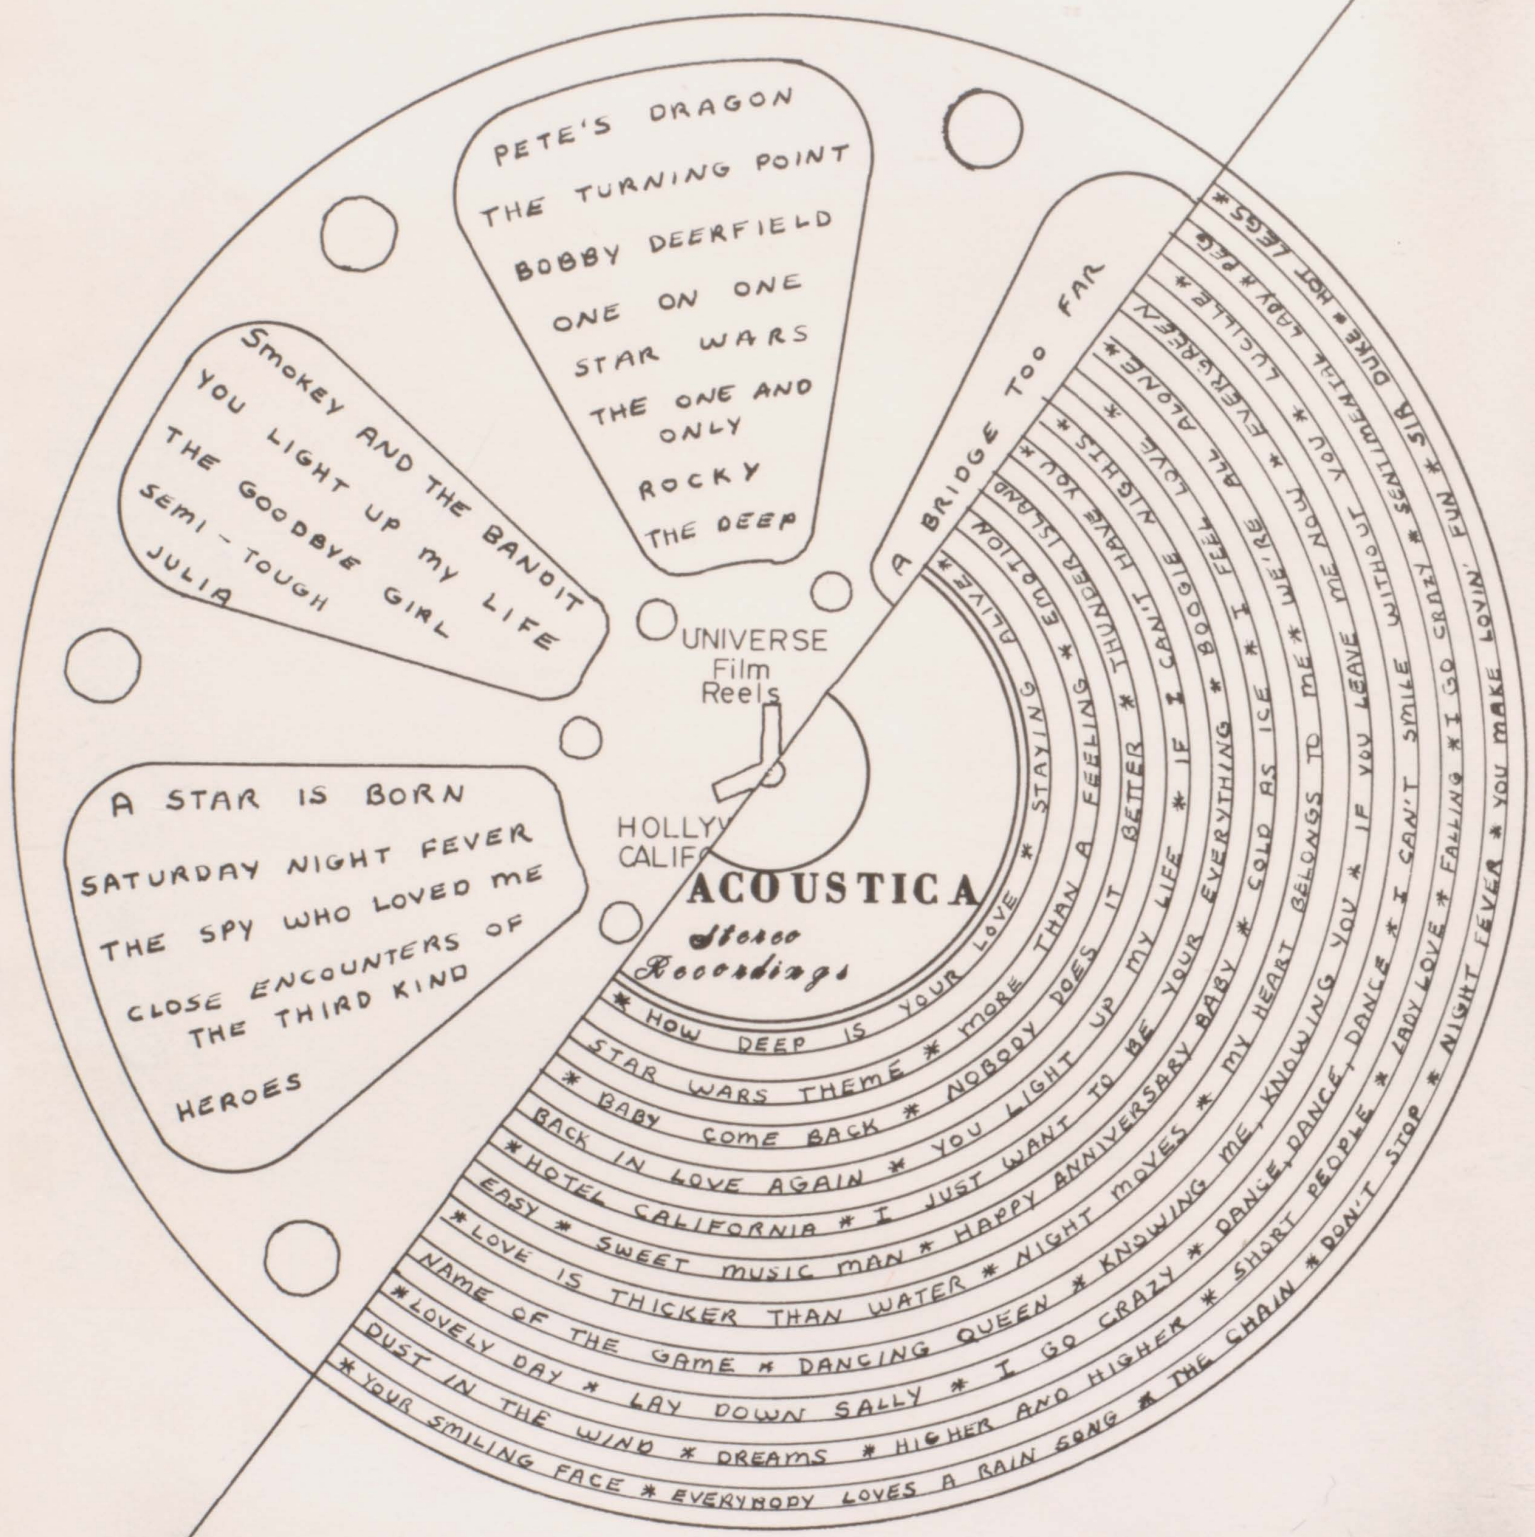 PETE'S DRAGON
THE TURNING POINT
BOBBY DEERFIELD
ONE ON ONE
STAR WARS
THE ONE AND
ONLY
ROCKY
THE DEEP
A BRIDGE TOO FAR
SMOKEY AND THE BANDIT
YOU LIGHT UP MY LIFE
THE GOODBYE GIRL
SEMI-TOUGH
JULIA
A STAR IS BORN
SATURDAY NIGHT FEVER
THE SPY WHO LOVED ME
CLOSE ENCOUNTERS OF
THE THIRD KIND
HEROES
UNIVERSE
Film
Reels
HOLLYW
CALIFO
ACOUSTICA
Stereo
Recordings
* HOW DEEP IS YOUR LOVE * STAYING ALIVE *
STAR WARS THEME * MORE THAN A FEELING * EMOTION
* BABY COME BACK * NOBODY DOES IT BETTER * THUNDER ISLAND
BACK IN LOVE AGAIN * YOU LIGHT UP MY LIFE * IF I CAN'T HAVE YOU *
* HOTEL CALIFORNIA * I JUST WANT TO BE YOUR EVERYTHING * BOOGIE NIGHTS *
EASY * SWEET MUSIC MAN * HAPPY ANNIVERSARY BABY * COLD AS ICE * I FEEL LOVE *
* LOVE IS THICKER THAN WATER * NIGHT MOVES * MY HEART BELONGS TO ME * WE'RE ALL ALONE *
NAME OF THE GAME * DANCING QUEEN * KNOWING ME, KNOWING YOU * IF YOU LEAVE ME NOW * EVERGREEN
* LOVELY DAY * LAY DOWN SALLY * I GO CRAZY * DANCE, DANCE, DANCE, DANCE * I CAN'T SMILE WITHOUT YOU * LUCILLE *
DUST IN THE WIND * DREAMS * HIGHER AND HIGHER * SHORT PEOPLE * LADY LOVE * FALLING * I GO CRAZY * SENTIMENTAL LADY * PEG
* YOUR SMILING FACE * EVERYBODY LOVES A RAIN SONG * THE CHAIN * DON'T STOP * NIGHT FEVER * YOU MAKE LOVIN' FUN * SIR DUKE * HOT LEGS *